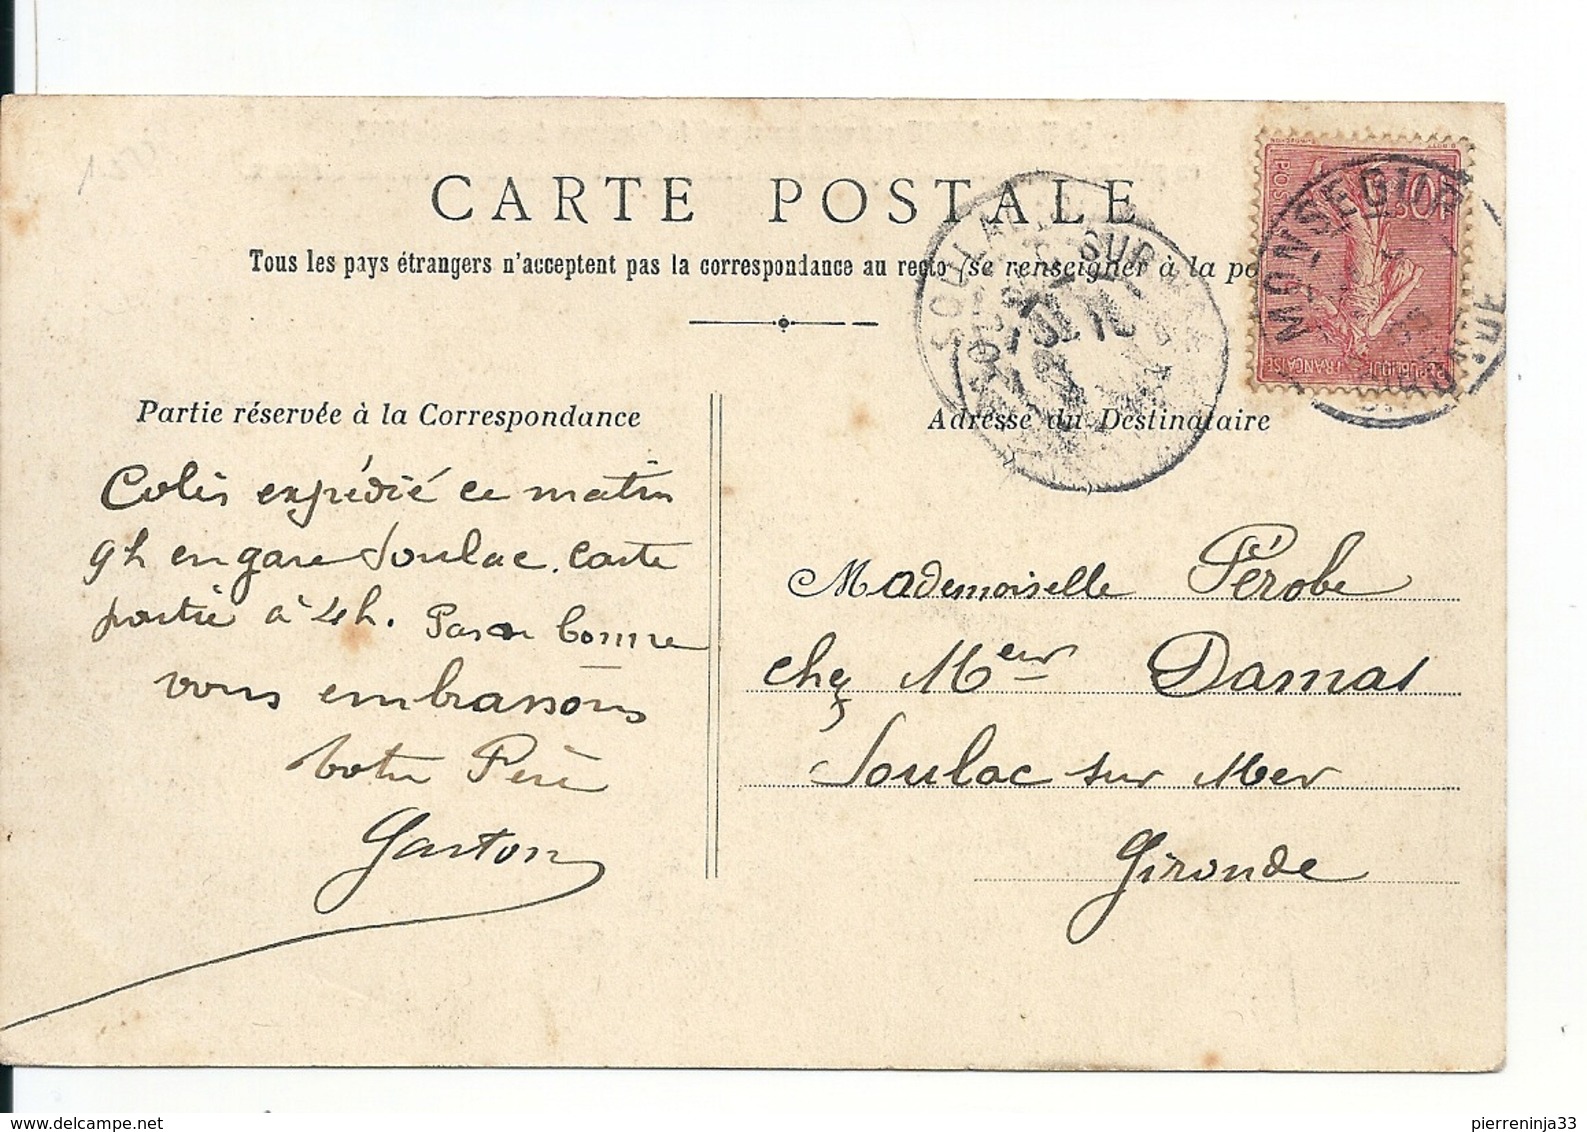 CARTE POSTALE
Tous les pays étrangers n'acceptent pas la correspondance au recto (se renseigner à la po
Partie réservée à la Correspondance
Colis expédié ce matin
9h en gare Soulac. Carte
partie à 4h.
vous embrassons
votre Père
Gaston
Adresse du Destinataire
Mademoiselle Pérobe
chez Meur Damas
Soulac sur Mer
Gironde
MONSEGUR
SOULAC SUR MER
10
POSTES
REPUBLIQUE FRANÇAISE
pierreninja33